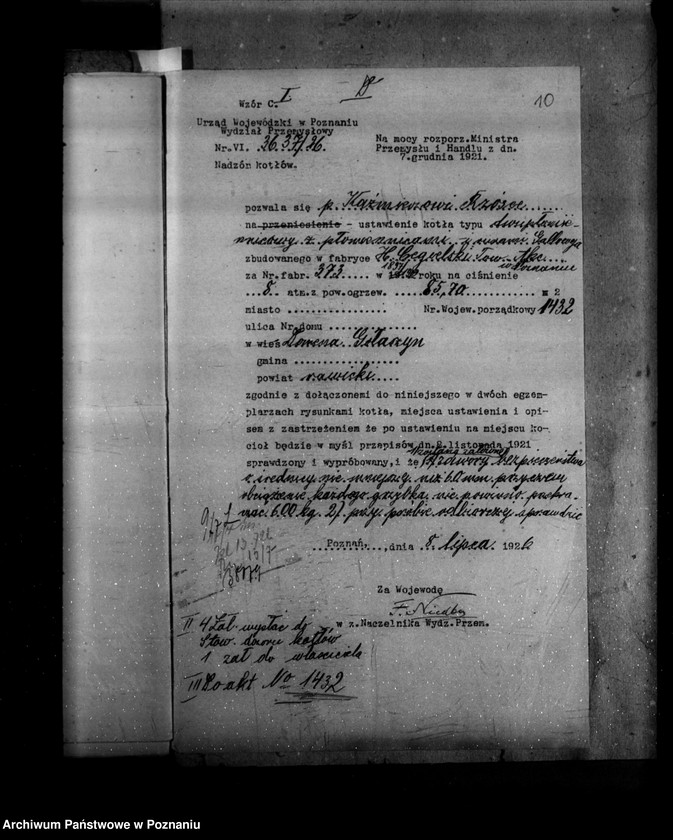 10
Wzór C. I
Urząd Wojewódzki w Poznaniu
Wydział Przemysłowy
Nr.VI. 26.37/26.
Nadzór kotłów.
Na mocy rozporz.Ministra
Przemysłu i Handlu z dn.
7.grudnia 1921.
pozwala się p. Kaźmierzowi Rzósce
na przeniesienie - ustawienie kotła typu
z płomienicami
zbudowanego w fabryce H. Cegielski Tow. Akc. w Poznaniu
za Nr.fabr. 373 w roku na ciśnienie
8 atm.z pow.ogrzew. 85,70 m 2
miasto Nr.Wojew.porządkowy 1432
ulica Nr.domu
w wieś Domena Gołaszyn
gmina
powiat rawicki
zgodnie z dołączonemi do niniejszego w dwóch egzem-
plarzach rysunkami kotła, miejsca ustawienia i opi-
sem z zastrzeżeniem że po ustawieniu na miejscu ko-
cioł będzie w myśl przepisów dn.2.listopada 1921
sprawdzony i wypróbowany,i że zawory bezpieczeństwa
o średnicy nie mniejszej niż 60 mm. przyczem
obciążenie każdego grzybka nie powinno przekra-
czać 600 kg. 2) przy próbie odbiorczej sprawdzić
Poznań, dnia 8 lipca 1926
Za Wojewodę
w z.Naczelnika Wydz.Przem.
II 4 Zał. wysłać do
Stow. dozoru kotłów
1 zał do właściciela
III Do akt No 1432
Archiwum Państwowe w Poznaniu